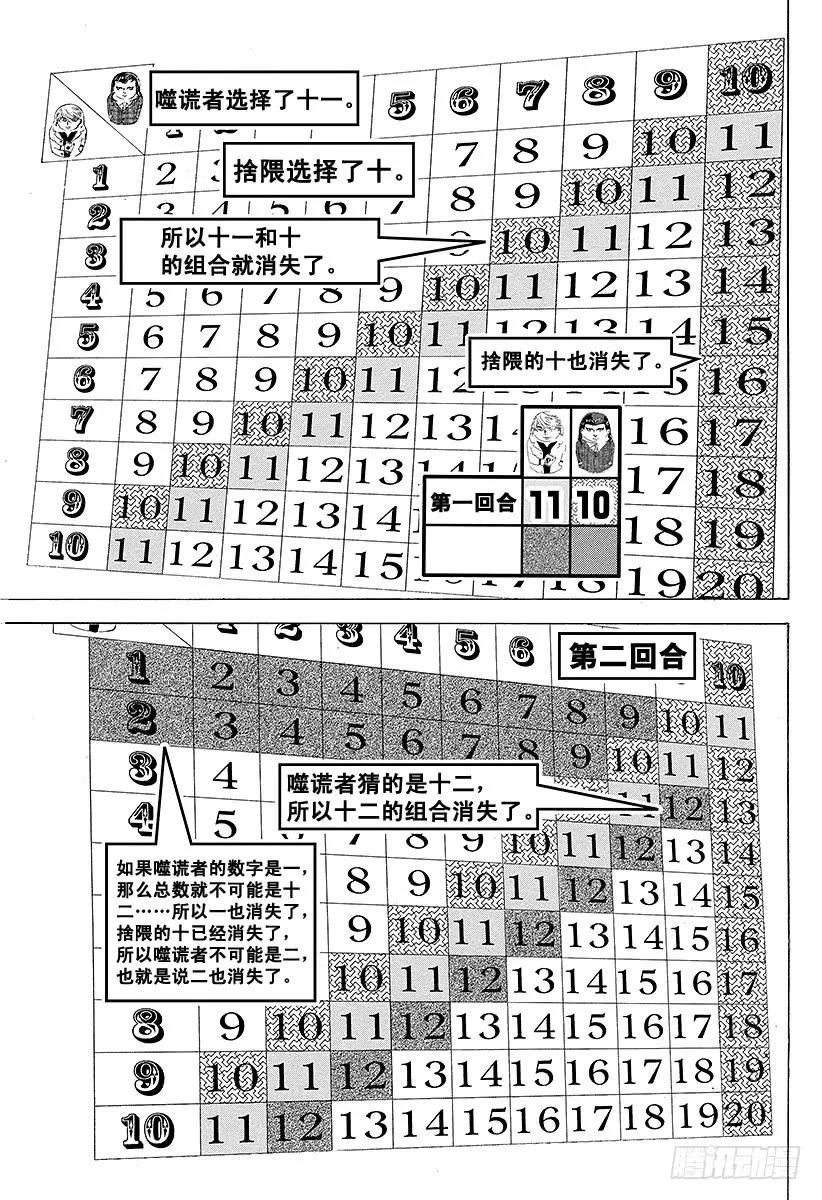 5 6 7 8 9 10
噬谎者选择了十一。
1 2 3 7 8 9 10 11
捨隈选择了十。
2 3 4 5 6 7 8 9 10 11 12
所以十一和十
的组合就消失了。
3 10 11 12 13
4 5 6 7 8 9 10 11 12 13 14
5 6 7 8 9 10 11 12 13 14 15
捨隈的十也消失了。
6 7 8 9 10 11 12 15 16
7 8 9 10 11 12 13 14 16 17
8 9 10 11 12 13 14 17 18
第一回合 11 10
9 10 11 12 13 14 18 19
10 11 12 13 14 15 16 17 18 19 20
1 2 3 4 5 6 10
第二回合
1 2 3 4 5 6 7 8 9 10 11
2 3 4 5 6 7 8 9 10 11 12
3 4 11 12 13
噬谎者猜的是十二，
所以十二的组合消失了。
4 5 7 8 9 10 11 12 13 14
如果噬谎者的数字是一，
那么总数就不可能是十
二……所以一也消失了，
捨隈的十已经消失了，
所以噬谎者不可能是二，
也就是说二也消失了。
8 9 10 11 12 13 14 15
9 10 11 12 13 14 15 16
10 11 12 13 14 15 16 17
8 9 10 11 12 13 14 15 16 17 18
9 10 11 12 13 14 15 16 17 18 19
10 11 12 13 14 15 16 17 18 19 20
腾讯动漫